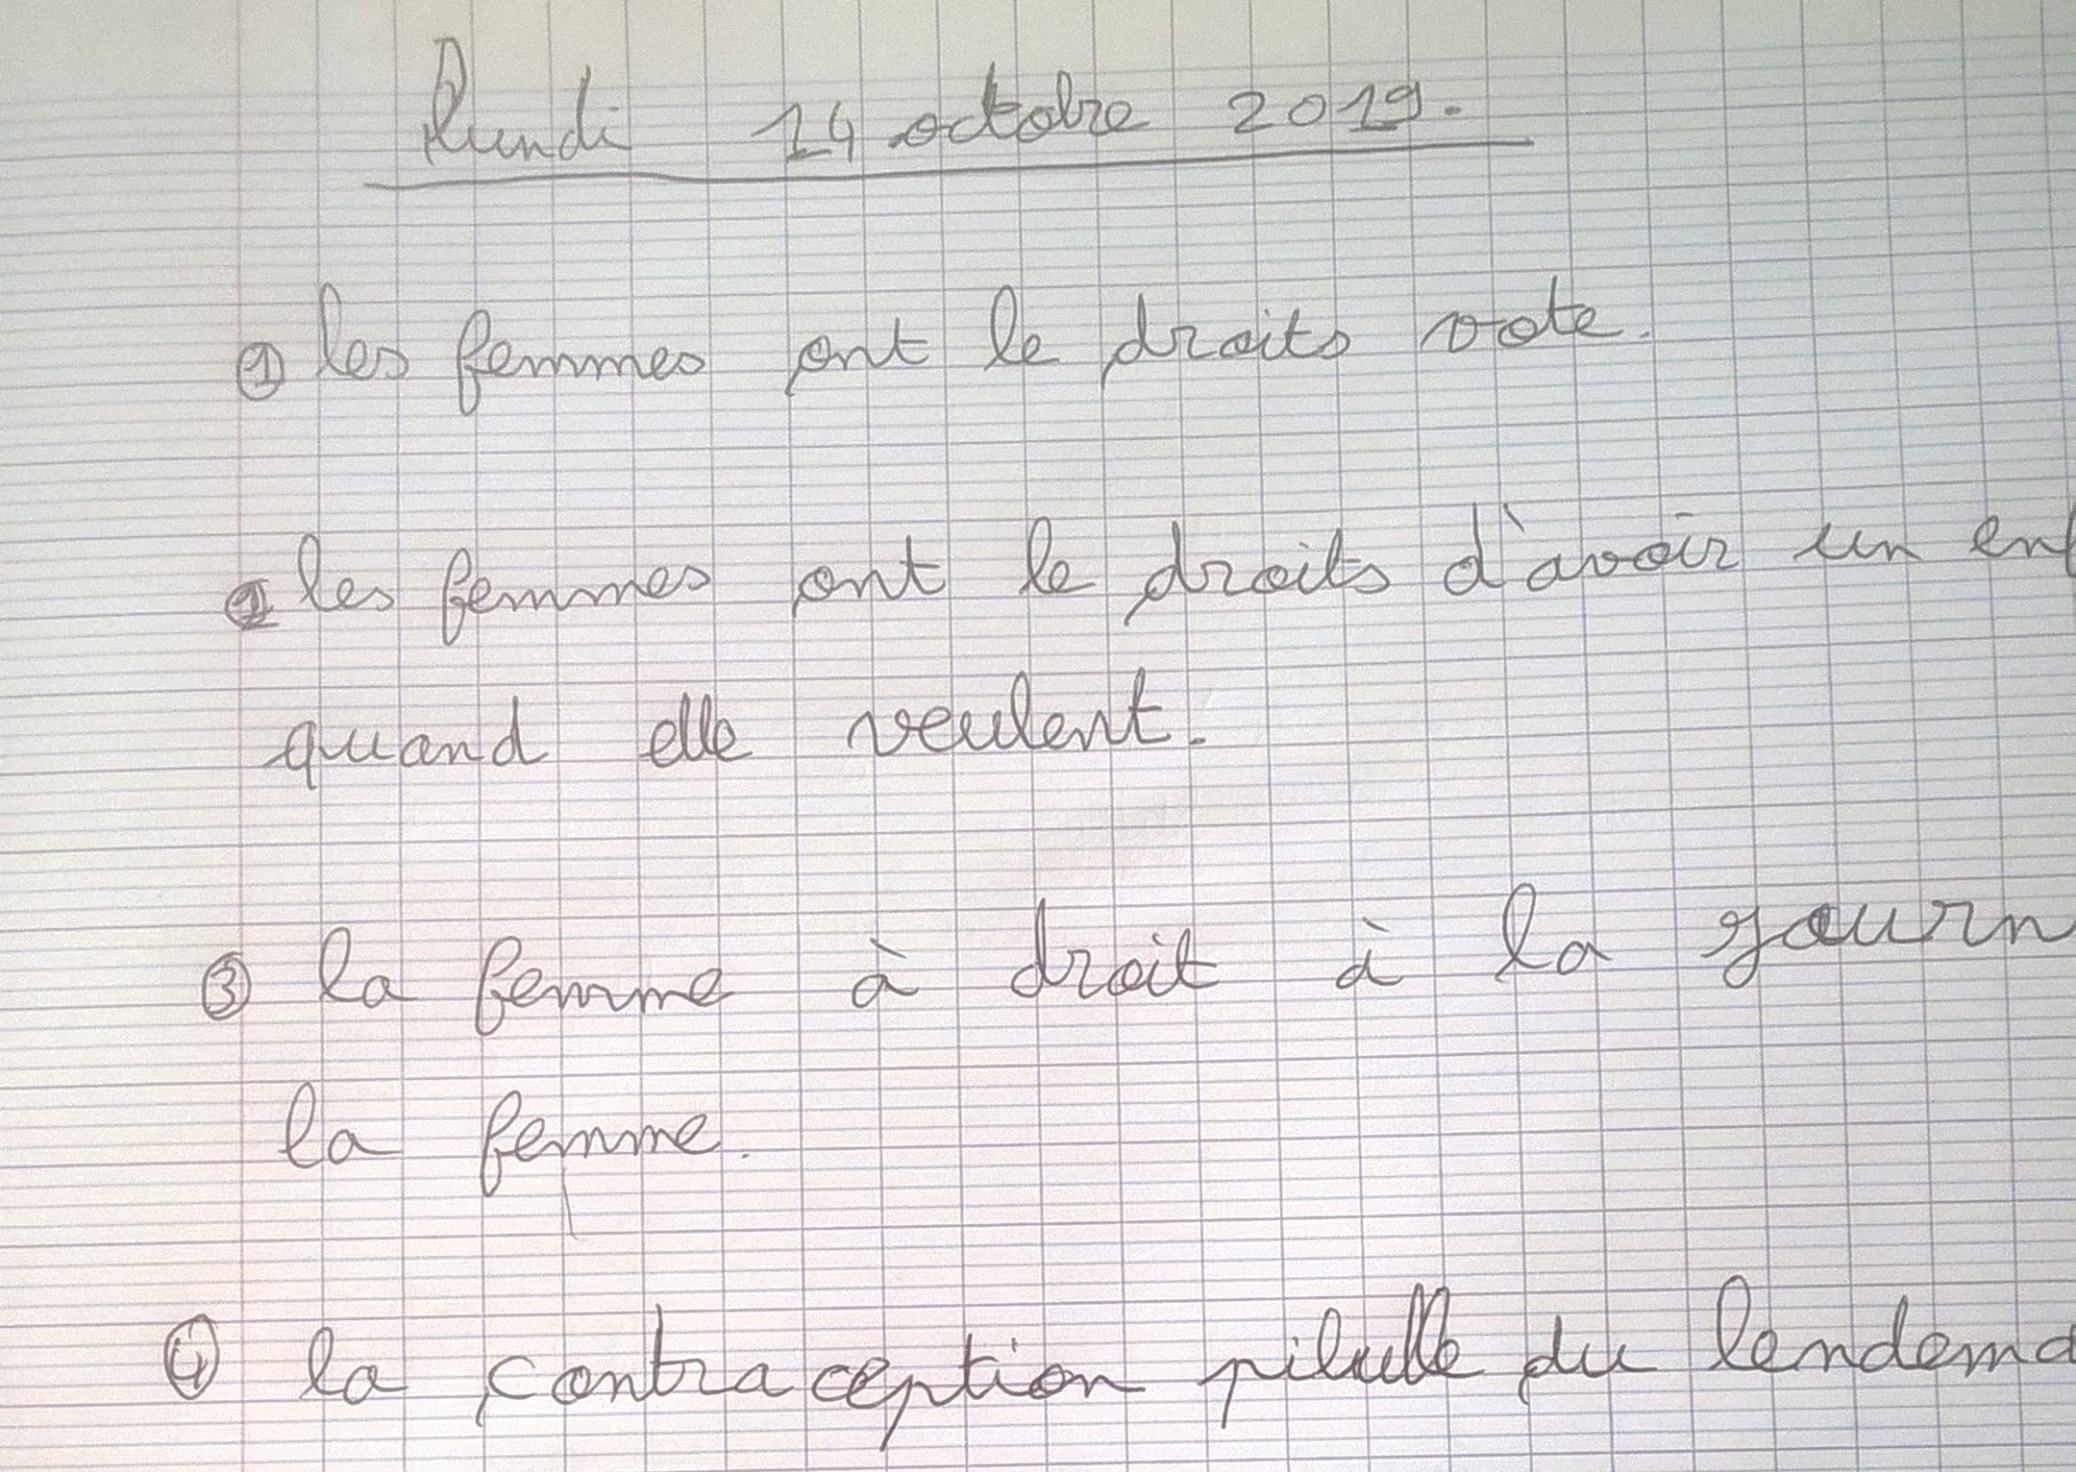 Lundi 14 octobre 2019.
① les femmes ont le droits vote.
② les femmes ont le droits d'avoir un enf
quand elle veulent.
③ la femme à droit à la journ
la femme.
④ la contraception pilulle du lendema